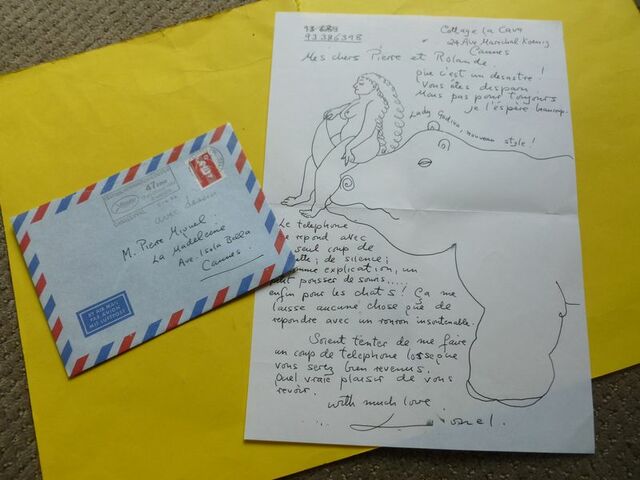 93386398
Cottage La Cava
24 Ave Maréchal Koenig
Cannes
Mes chers Pierre et Rolande,
que c'est un desastre!
Vous êtes disparu
Mais pas pour toujours
je l'éspère beaucoup.
Lady Godiva, nouveau style!
Le telephone
repond avec
seul coup de
; de silence;
comme explication, un
pousser de
enfin pour les chats! Ça me
laisse aucune chose que de
repondre avec un ronron insoutenable.
Soient tenter de me faire
un coup de telephone lorsque
vous serez bien revenus.
Quel vraie plaisir de vous
revoir.
with much love
Lionel.
47
avec dessin
M. Pierre
La Madeleine
Ave. Isola Bella
Cannes.
BY AIR MAIL
PAR AVION
MIT LUFTPOST